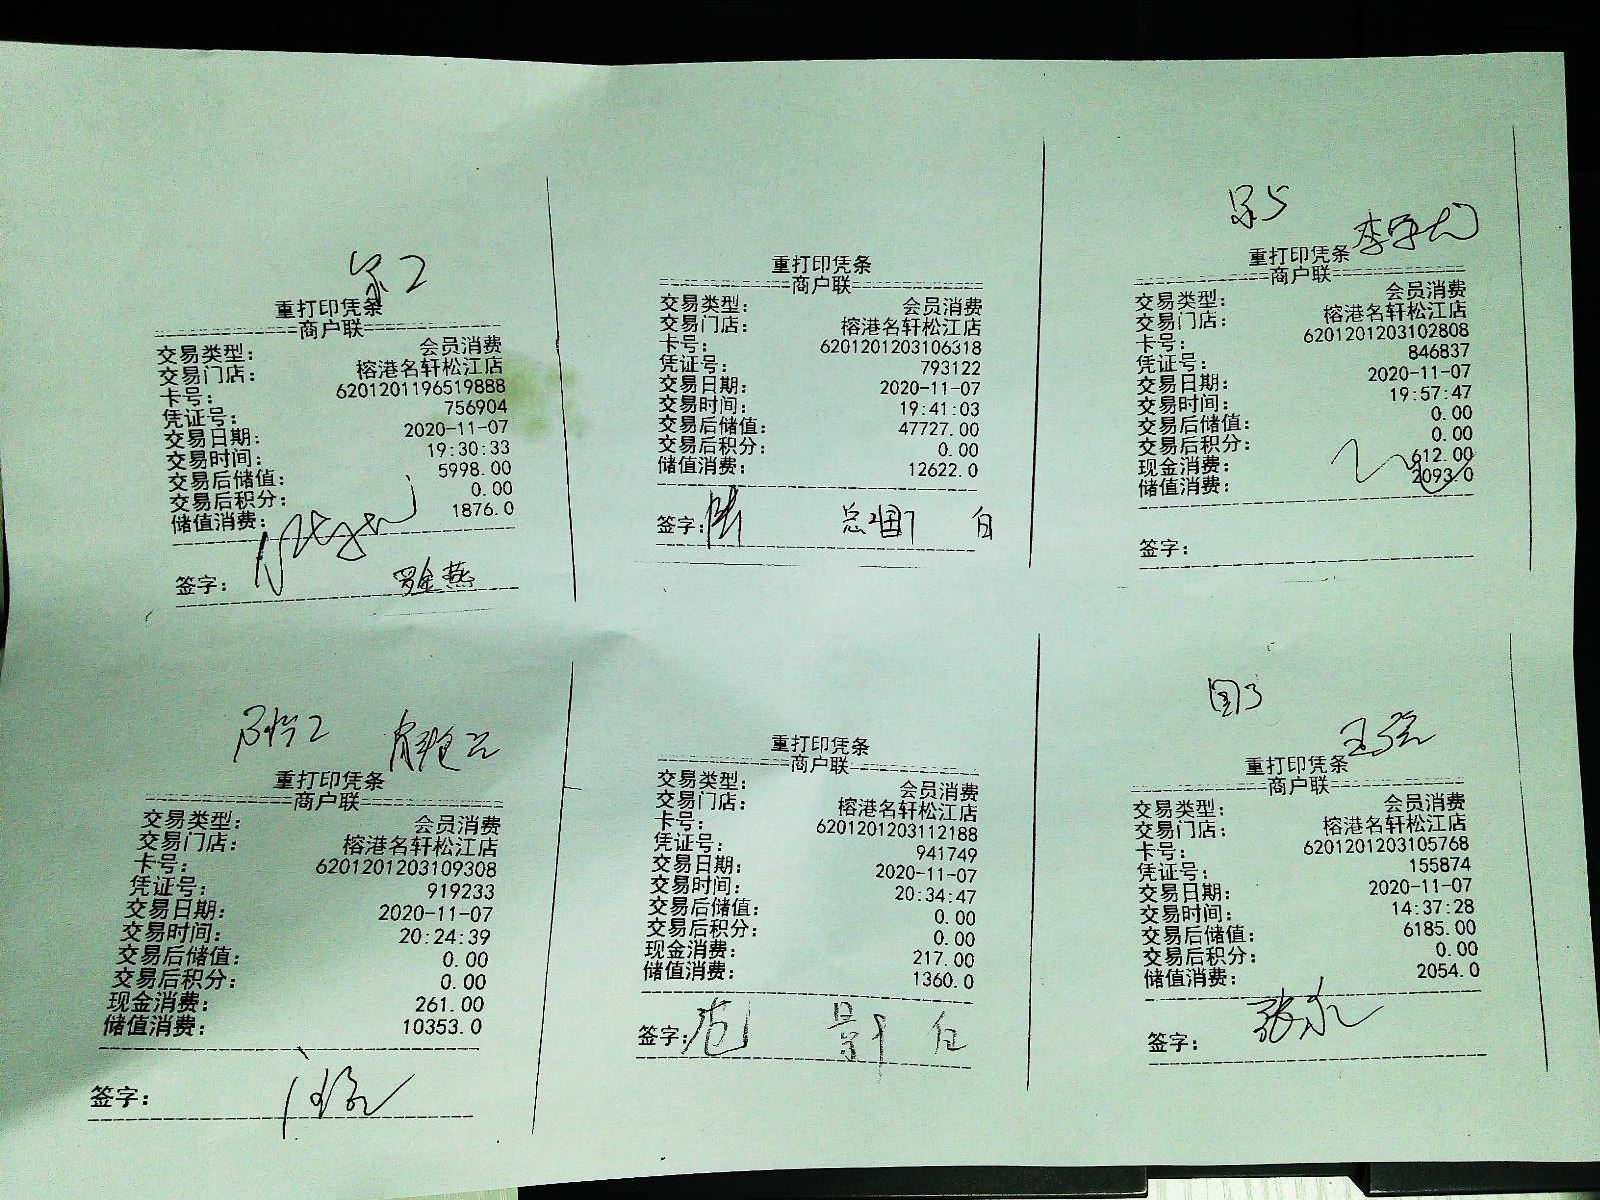 重打印凭条
商户联
交易类型： 会员消费
交易门店： 榕港名轩松江店
卡号： 6201201196519888
凭证号： 756904
交易日期： 2020-11-07
交易时间： 19:30:33
交易后储值： 5998.00
交易后积分： 0.00
储值消费： 1876.0
签字：
重打印凭条
商户联
交易类型： 会员消费
交易门店： 榕港名轩松江店
卡号： 6201201203106318
凭证号： 793122
交易日期： 2020-11-07
交易时间： 19:41:03
交易后储值： 47727.00
交易后积分： 0.00
储值消费： 12622.0
签字：
重打印凭条
商户联
交易类型： 会员消费
交易门店： 榕港名轩松江店
卡号： 6201201203102808
凭证号： 846837
交易日期： 2020-11-07
交易时间： 19:57:47
交易后储值： 0.00
交易后积分： 0.00
现金消费： 612.00
储值消费： 2093.0
签字：
重打印凭条
商户联
交易类型： 会员消费
交易门店： 榕港名轩松江店
卡号： 6201201203109308
凭证号： 919233
交易日期： 2020-11-07
交易时间： 20:24:39
交易后储值： 0.00
交易后积分： 0.00
现金消费： 261.00
储值消费： 10353.0
签字：
重打印凭条
商户联
交易类型： 会员消费
交易门店： 榕港名轩松江店
卡号： 6201201203112188
凭证号： 941749
交易日期： 2020-11-07
交易时间： 20:34:47
交易后储值： 0.00
交易后积分： 0.00
现金消费： 217.00
储值消费： 1360.0
签字：
重打印凭条
商户联
交易类型： 会员消费
交易门店： 榕港名轩松江店
卡号： 6201201203105768
凭证号： 155874
交易日期： 2020-11-07
交易时间： 14:37:28
交易后储值： 6185.00
交易后积分： 0.00
储值消费： 2054.0
签字：